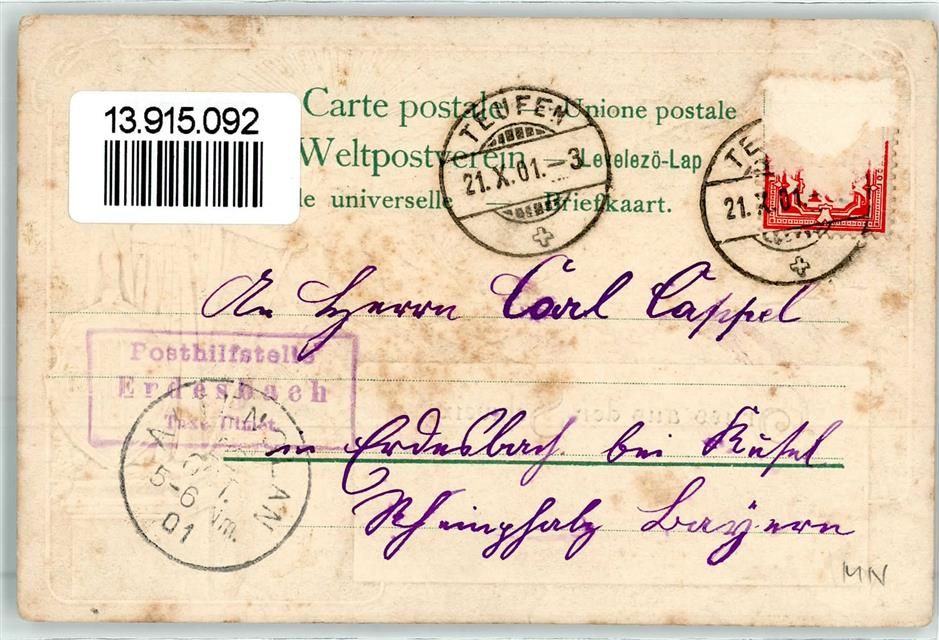 13.915.092
Carte postale — Unione postale
Weltpostverein — Levelezö-Lap
le universelle — Briefkaart.
TEUFEN
21.X.01.–3
TE
21.X.01.
An Herrn Carl Cappel
Posthilfstelle
Erdesbach
Taxe
ALTENGLAN
OKT.
5-6 Nm.
01
in Erdesbach bei Kusel
Rheinphalz Bayern
MN